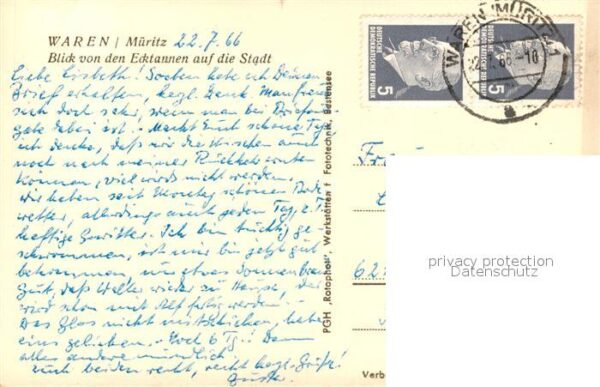 WAREN / Müritz 22.7.66
Blick von den Ecktannen auf die Stadt
Liebe Lisbeth! Soeben habe ich Deinen
Brief erhalten, hezgl. Dank. Manfred
sich doch sehr, wenn man bei
ist. Macht Euch schöne Tage,
ich denke, daß wir die Kirschen auch
noch nach meiner Rückkehr
können, viel wird nicht werden.
Wir haben seit Montag schönes Bade
wetter, allerdings auch jeden Tag, z. T.
heftige Gewitter. Ich bin tüchtig ge-
schwommen, ist mir bis jetzt gut
bekommen, nur etwas Sonnenbrand.
Gut, daß Walter wieder zu Hause, das
wird schon mit Alf fertig werden.
Das Glas nicht mitschicken, habe
eins geliehen. Noch 6 Tg.! Dann
alles andere mündlich
Euch beiden recht, recht hezgl. Grüße!
PGH „Rotophot", Werkstätten f. Fototechnik, Bestensee
DEUTSCHE
DEMOKRATISCHE REPUBLIK
5
DEUTSCHE
DEMOKRATISCHE REPUBLIK
5
WAREN (MÜRITZ) 1
66-18
a
Frau
62
Verb
privacy protection
Datenschutz